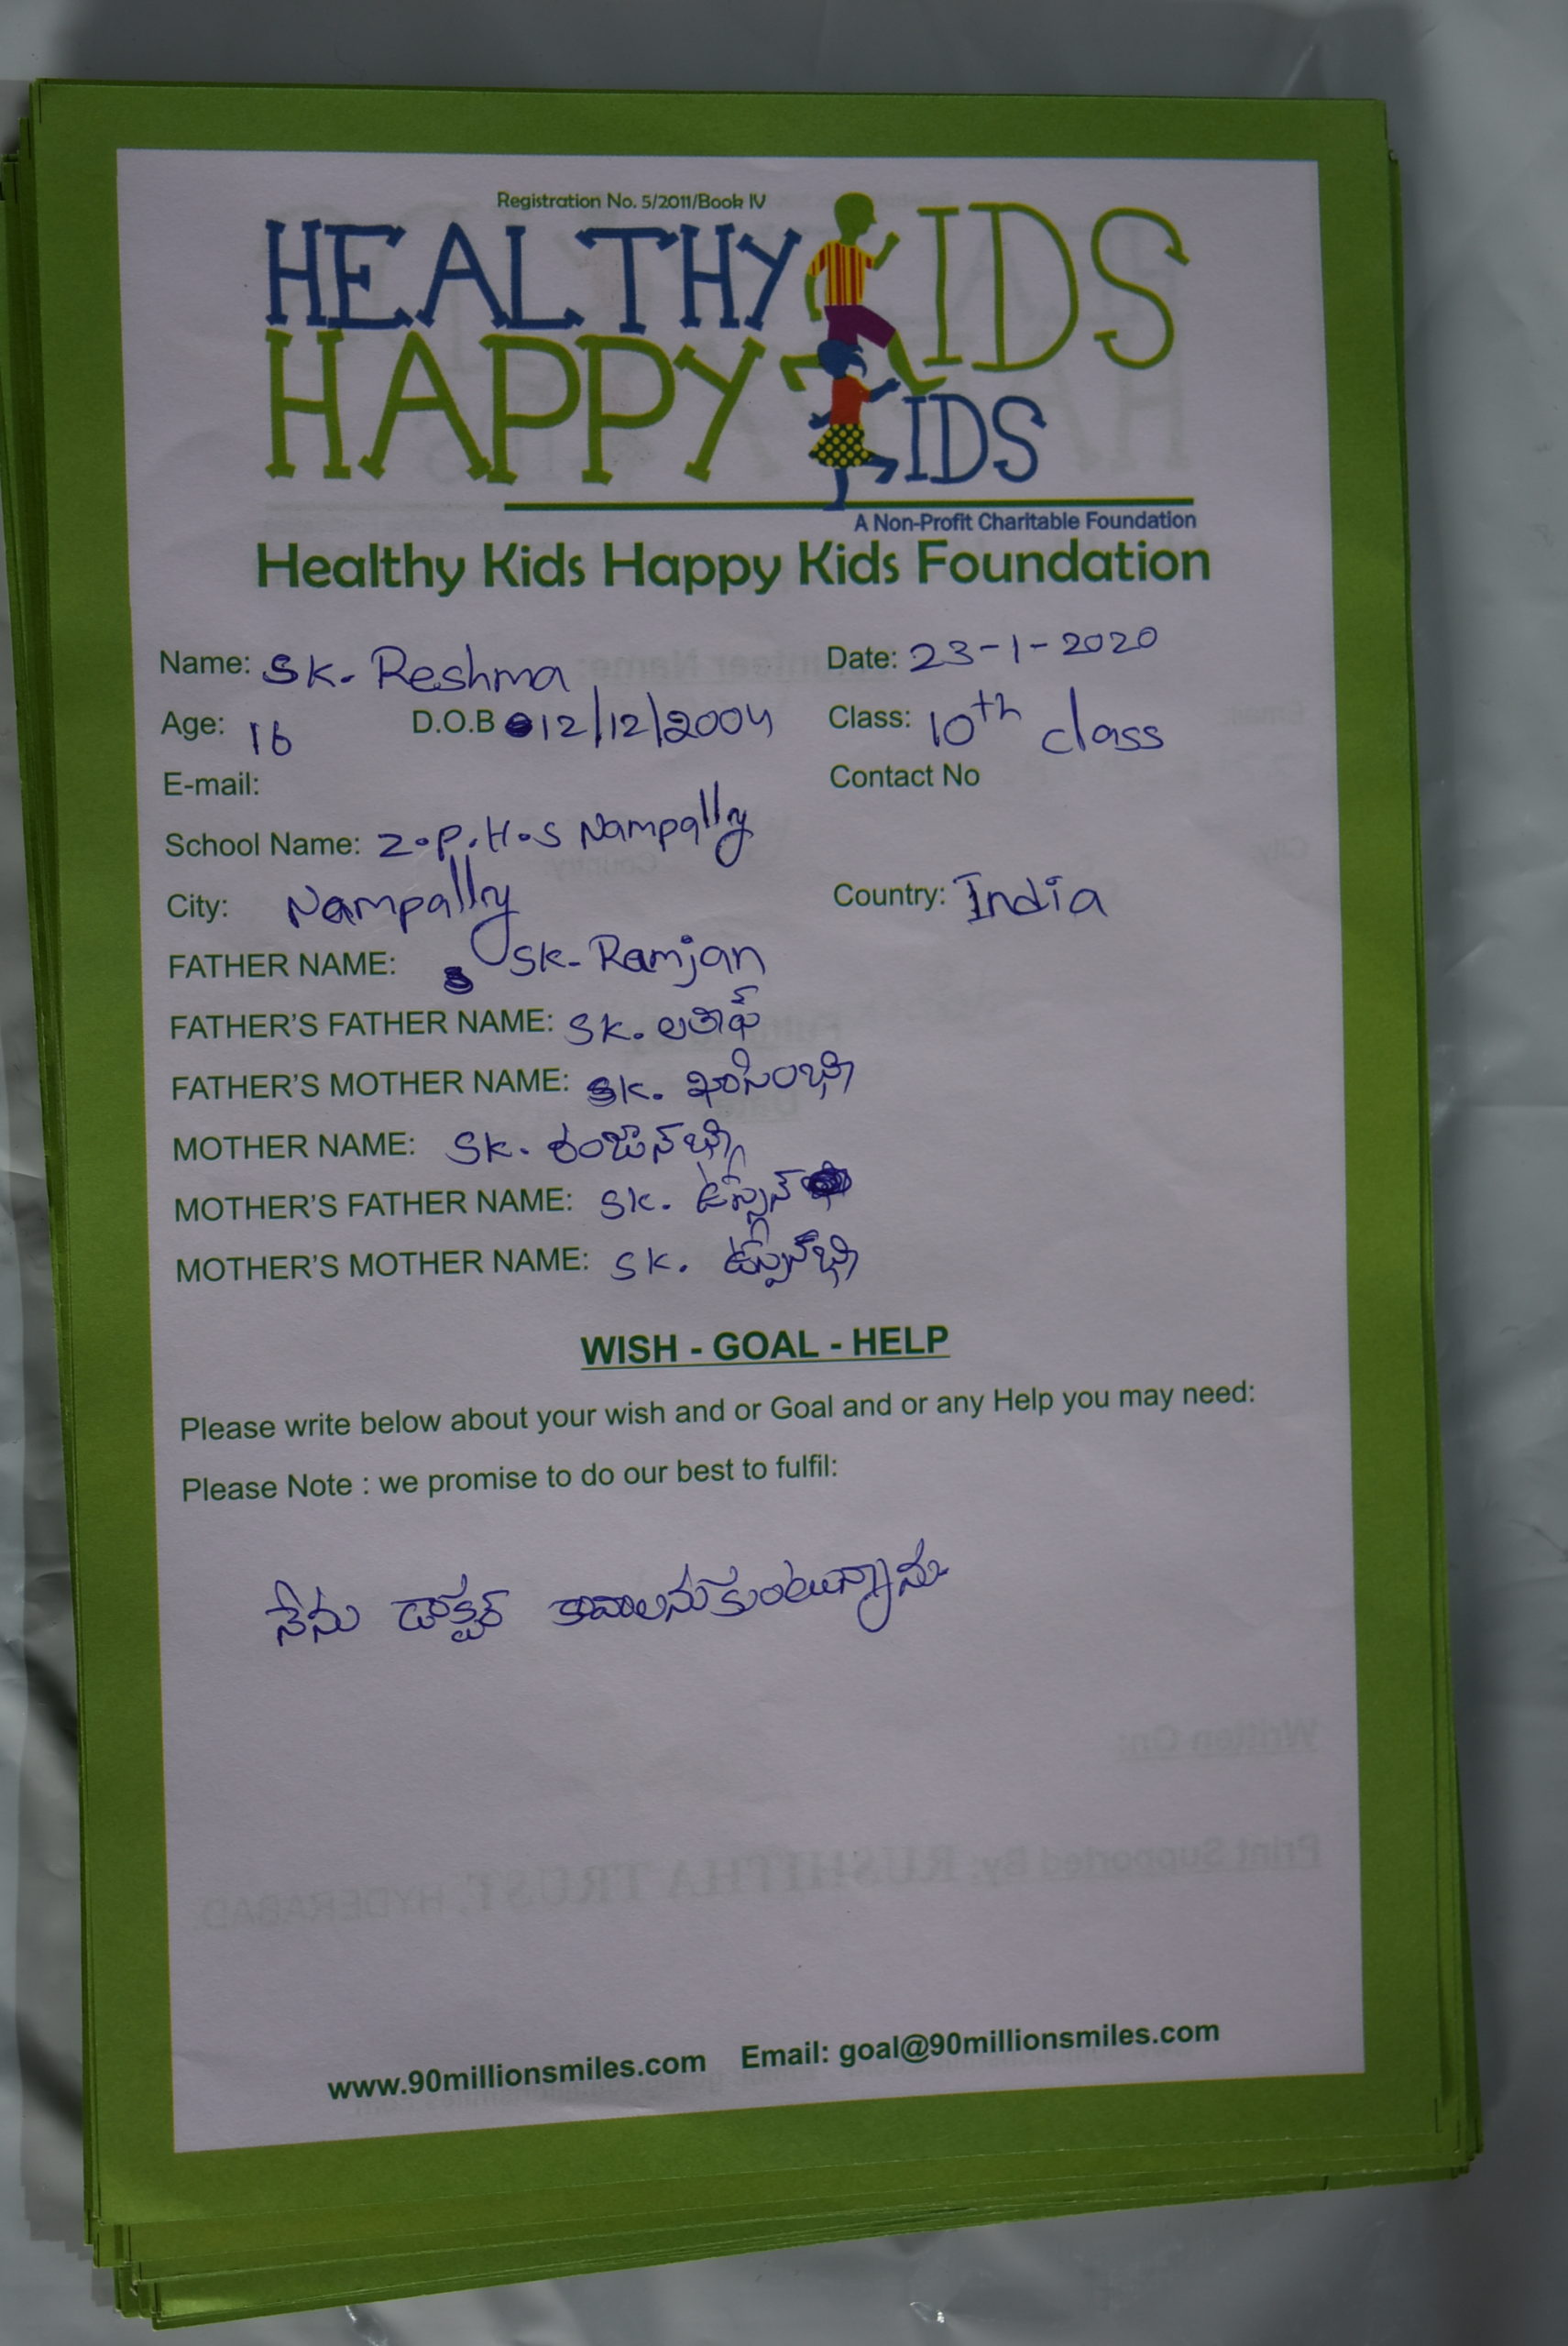 Registration No. 5/2011/Book IV
HEALTHY KIDS
HAPPY KIDS
A Non-Profit Charitable Foundation
Healthy Kids Happy Kids Foundation
Name: SK. Reshma Date: 23-1-2020
Age: 16 D.O.B 12/12/2004 Class: 10th class
E-mail: Contact No
School Name: Z.P.H.S Nampally
City: Nampally Country: India
FATHER NAME: SK. Ramjan
FATHER'S FATHER NAME: SK. లతీఫ్
FATHER'S MOTHER NAME: SK.
MOTHER NAME: SK. రంజాన్‌భీ
MOTHER'S FATHER NAME: SK.
MOTHER'S MOTHER NAME: SK.
WISH - GOAL - HELP
Please write below about your wish and or Goal and or any Help you may need:
Please Note : we promise to do our best to fulfil:
నేను డాక్టర్ కావాలనుకుంటున్నాను
Written On:
Print Supported By: RUSHITHA TRUST, HYDERABAD.
www.90millionsmiles.com Email: goal@90millionsmiles.com